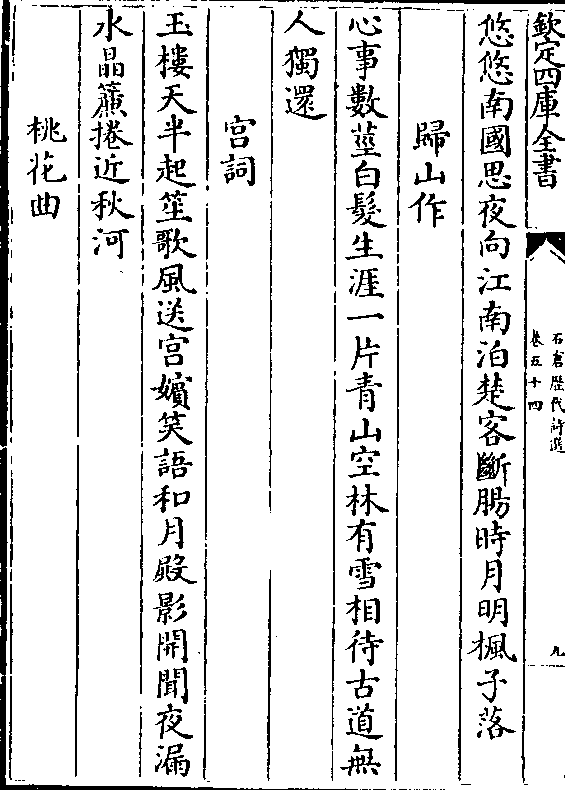 欽定四庫全書
石倉歴代詩選
卷五十四
九
悠悠南國思夜向江南泊楚客斷腸時月明楓子落
歸山作
心事數莖白髮生涯一片青山空林有雪相待古道無
人獨還
宫詞
玉樓天半起笙歌風送宫嬪笑語和月殿影開聞夜漏
水晶簾捲近秋河
桃花曲